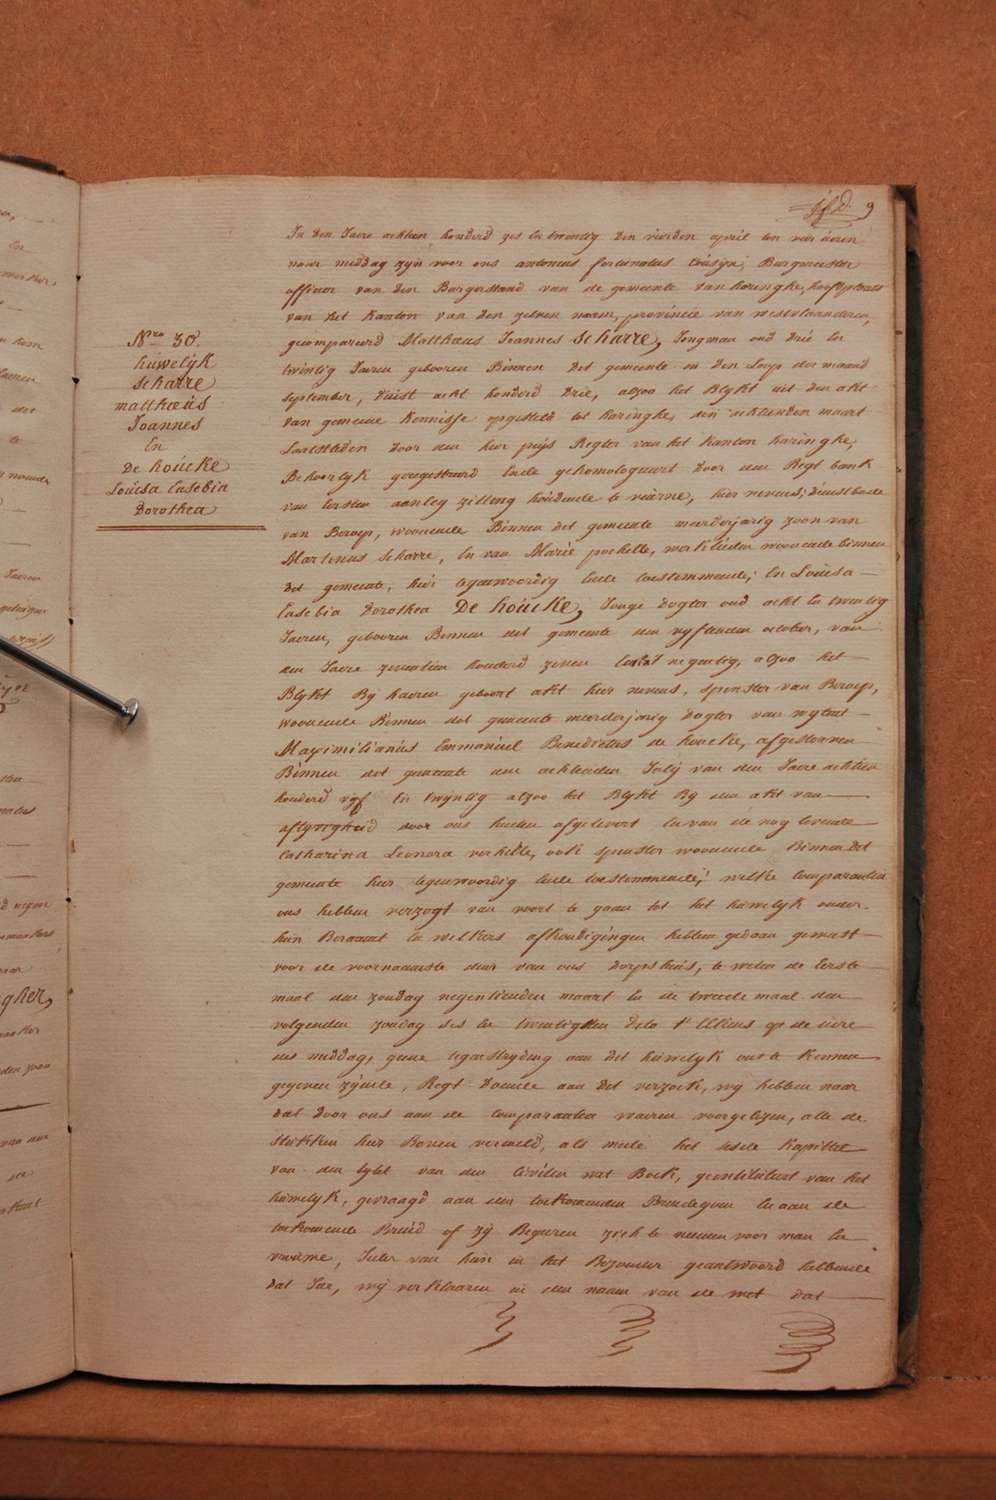 9
In den Jaere achtien honderd zes en twintig den vierden april ten vier uren
naer middag zyn voor ons antonius fortunatus Cousyn, Burgmeester
officier van den Burgerstand van de gemeente van haringhe, hoofdplaats
van het Kanton van den zelven naem, provincie van westvlaanderen,
gecompareerd Matthæus Joannes Scharre, Jongman oud drie en
twintig Jaeren gebooren Binnen det gemeente in den Loop der maand
september, duist acht honderd drie, alzoo het Blykt uit den akt
van gemeene Kennisse opgesteld tot haringhe, den achtienden maert
Laatstleden door den heer peijs Regter van het Kanton haringhe,
Behoorlyk geregistreerd Ende gehomologueert door den Regt bank
van Eersten aanleg zitting houdende te vuerne, hier nevens; dienstbode
van Beroep, woonende Binnen det gemeente meerderjarig zoon van
Martinus Scharre, En van Marie pochelle, werklieden woonende binnen
det gemeente, hier tegenwoordig Ende toestemmende; En Louisa
Eusebia Dorothea De houcke, Jonge dogter oud acht en twentig
Jaeren, gebooren Binnen det gemeente den vyftienden october, van
den Jaere zeventien honderd zeven Ent negentig, alzoo het
Blykt By haeren geboort akt hier nevens, spenster van Beroep,
woonende Binnen det gemeente meerderjarig dogter van wylent
Maximilianus Emmanuel Benedictus de houcke, afgestorven
Binnen det gemeente den achtienden July van den Jaere achtien
honderd vyf En twintig alzoo het Blykt By den akt van
aflyvigheid door ons heden afgelevert En van de nog levende
Catharina Leonora verhille, ook spenster woonende Binnen det
gemeente hier tegenwoordig Ende toestemmende; welke Comparanten
ons hebben verzogt van voort te gaan tot het huwelyk onder
hun Beraamt En welkers afkondigingen hebben gedaan geweest
voor de voornaamste deur van ons dorpshuis, te weten de Eerste
maal den zondag negentienden maert En de tweede maal den
volgenden zondag ses En twentigsten dito t'Elkens op de uere
des middag, geene tegenstryding aan det huwelyk ons te Kennen
gegeven zynde, Regt doende aan det verzoek, wy hebben naer
dat door ons aan de Comparanten waeren voorgelezen, alle de
stukken hier Boven vermeld, als mede het seste Kapittel
van den tytel van den Civilen wet Boek, geentituleert van het
huwelyk, gevraagd aan den toekomenden Bruidegom En aan de
toekomende Bruid of zy Begeeren zich te nemen voor man En
vrouwe, Ieder van hun in het Bezonder geantwoord hebbende
dat Jae, wy verklaaren in den naem van de wet dat
Nro 30.
huwelyk
Scharre
matthæus
Joannes
En
De houcke
Louisa Eusebia
Dorothea